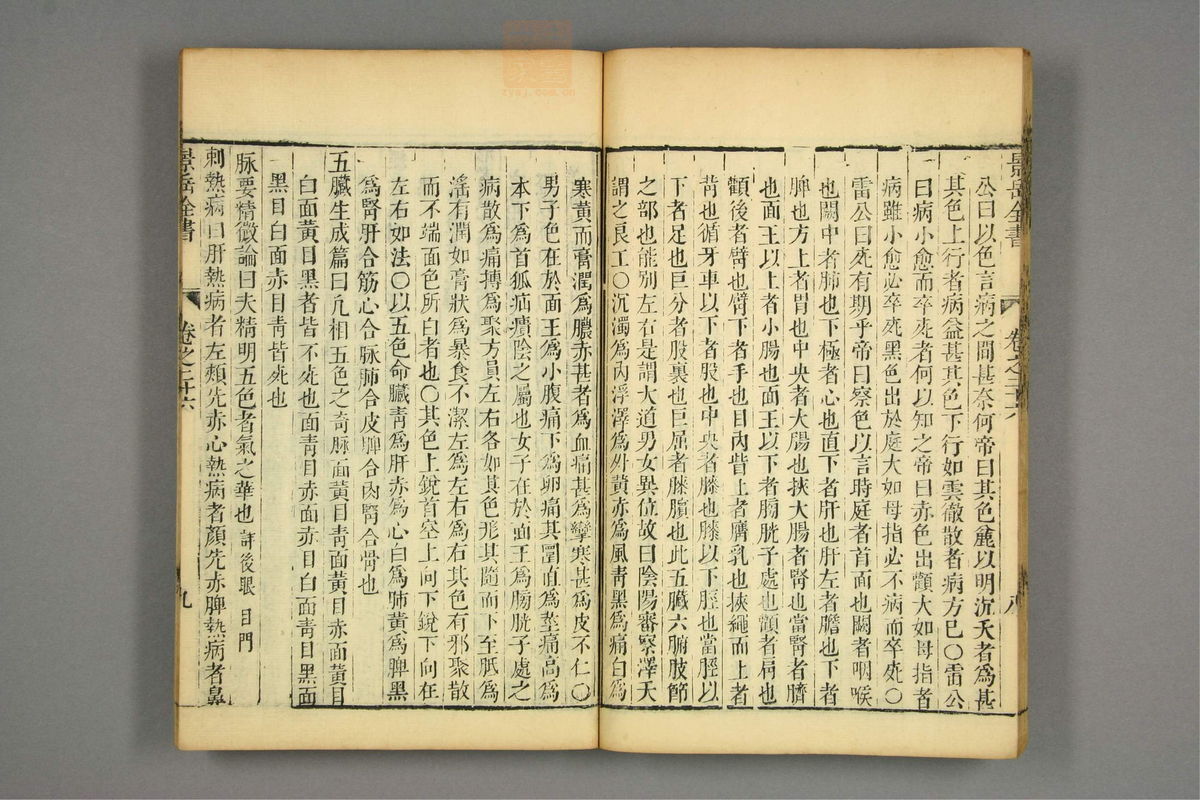 景岳全書
卷之二十六
八
公曰以色言病之間甚奈何帝曰其色麄以明沉夭者爲甚
其色上行者病益甚其色下行如雲徹散者病方已〇雷公
曰病小愈而卒死者何以知之帝曰赤色出顴大如母指者
病雖小愈必卒死黑色出於庭大如母指必不病而卒死〇
雷公曰死有期乎帝曰察色以言時庭者首面也闕者咽喉
也闕中者肺也下極者心也直下者肝也肝左者膽也下者
脾也方上者胃也中央者大腸也挾大腸者腎也當腎者臍
也面王以上者小腸也面王以下者膀胱子處也顴者肩也
顴後者臂也臂下者手也目內眥上者膺乳也挾繩而上者
背也循牙車以下者股也中央者膝也膝以下脛也當脛以
下者足也巨分者股裏也巨屈者膝臏也此五臟六腑肢節
之部也能別左右是謂大道男女異位故曰陰陽審察澤夭
謂之良工〇沉濁爲內浮澤爲外黃赤爲風青黑爲痛白爲
寒黃而膏潤爲膿赤甚者爲血痛甚爲攣寒甚爲皮不仁〇
男子色在於面王爲小腹痛下爲卵痛其圜直爲莖痛高爲
本下爲首狐疝㿉陰之屬也女子在於面王爲膀胱子處之
病散爲痛搏爲聚方員左右各如其色形其隨而下至胝爲
淫有潤如膏狀爲暴食不潔左爲左右爲右其色有邪聚散
而不端面色所白者也〇其色上銳首空上向下銳下向在
左右如法〇以五色命臟青爲肝赤爲心白爲肺黃爲脾黑
爲腎肝合筋心合脉肺合皮脾合肉腎合骨也
五臟生成篇曰凡相五色之奇脉面黃目青面黃目赤面黃目
白面黃目黑者皆不死也面青目赤面赤目白面青目黑面
黑目白面赤目青皆死也
脉要精微論曰夫精明五色者氣之華也詳後眼目門
刺熱病曰肝熱病者左頰先赤心熱病者顏先赤脾熱病者鼻
景岳全書
卷之二十六
九